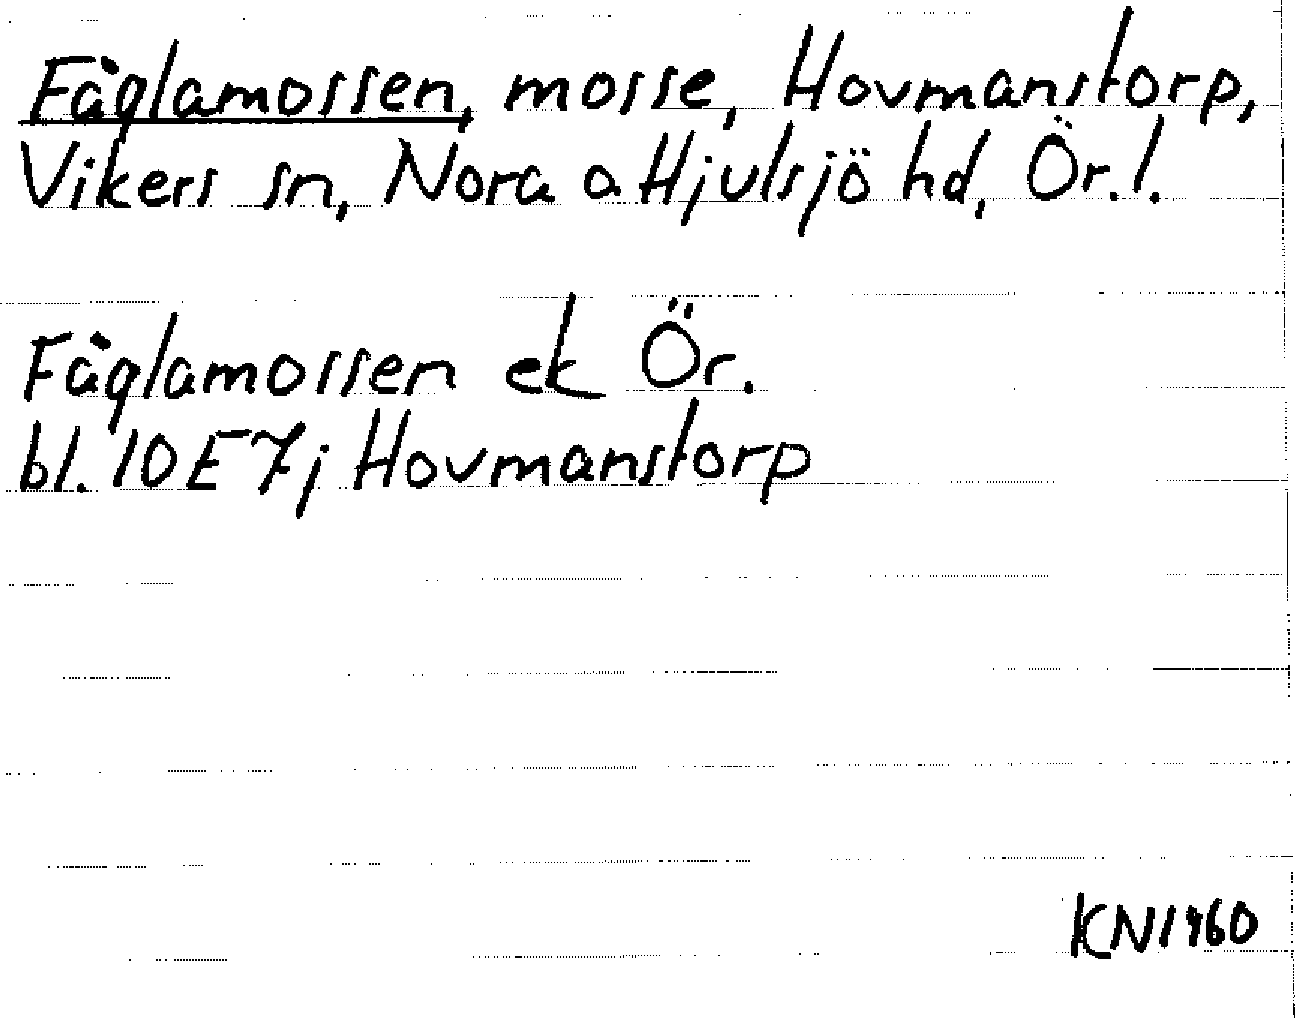 Fåglamossen, mosse, Hovmanstorp,
Vikers sn, Nora o Hjulsjö hd, Ör. l.
Fåglamossen ek Ör.
bl. 10E7j Hovmanstorp
KN1960